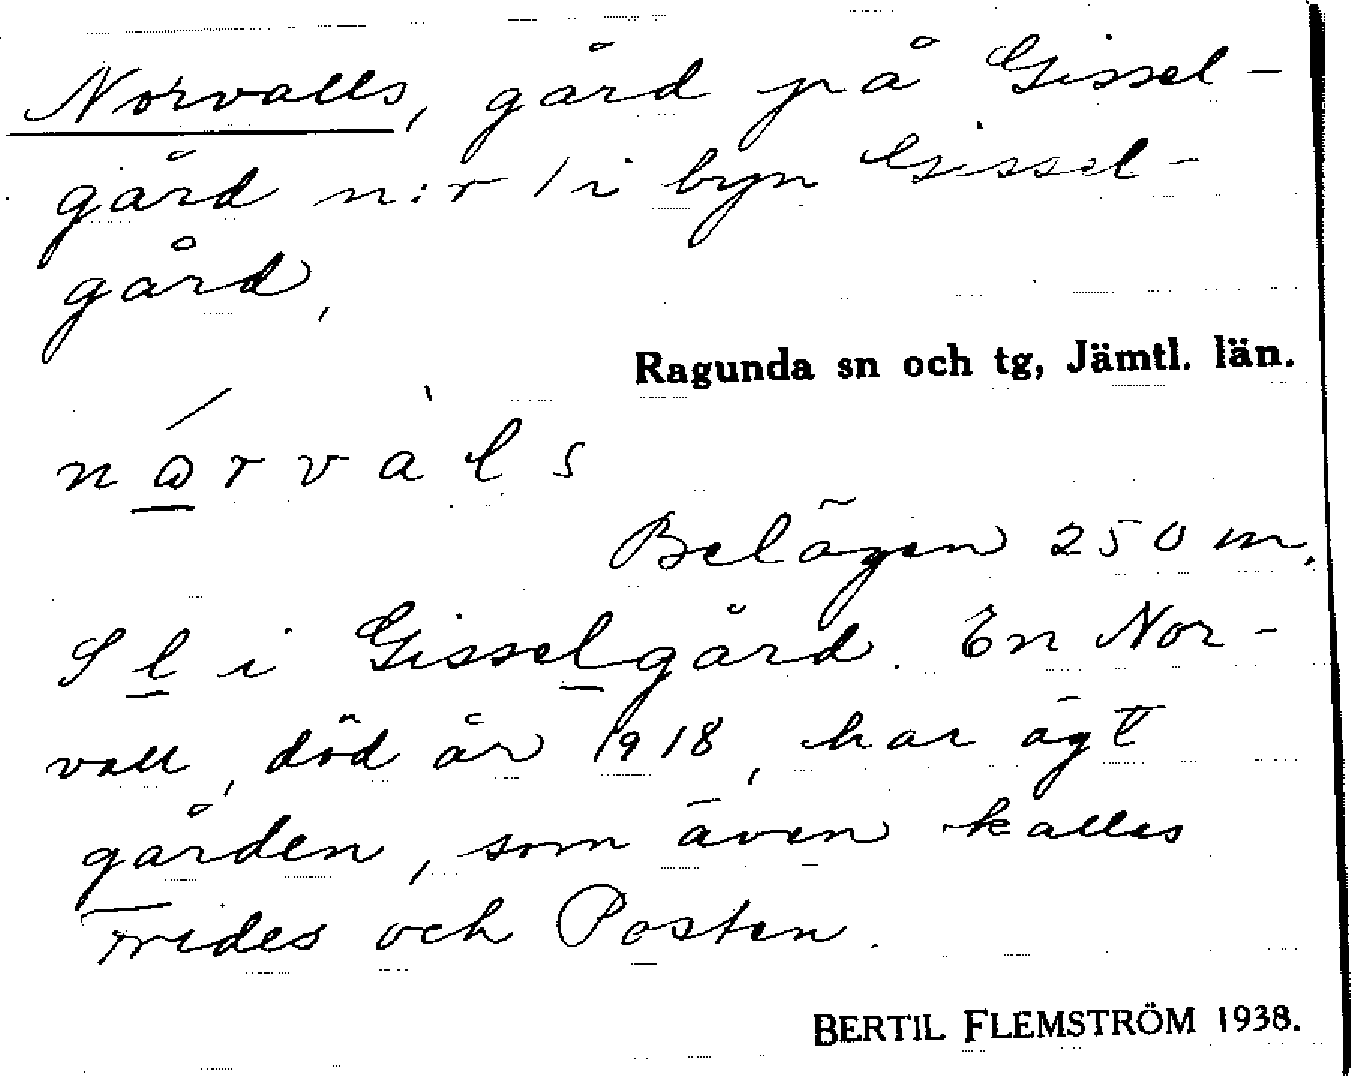 Norvalls, gård på Gissel-
gård n:r 1 i byn Gissel-
gård,
Ragunda sn och tg, Jämtl. län.
Belägen 250 m.
S l i Gisselgård. En Nor-
vall, död år 1918, har ägt
gården, som även kallas
Frides och Posten.
BERTIL FLEMSTRÖM 1938.